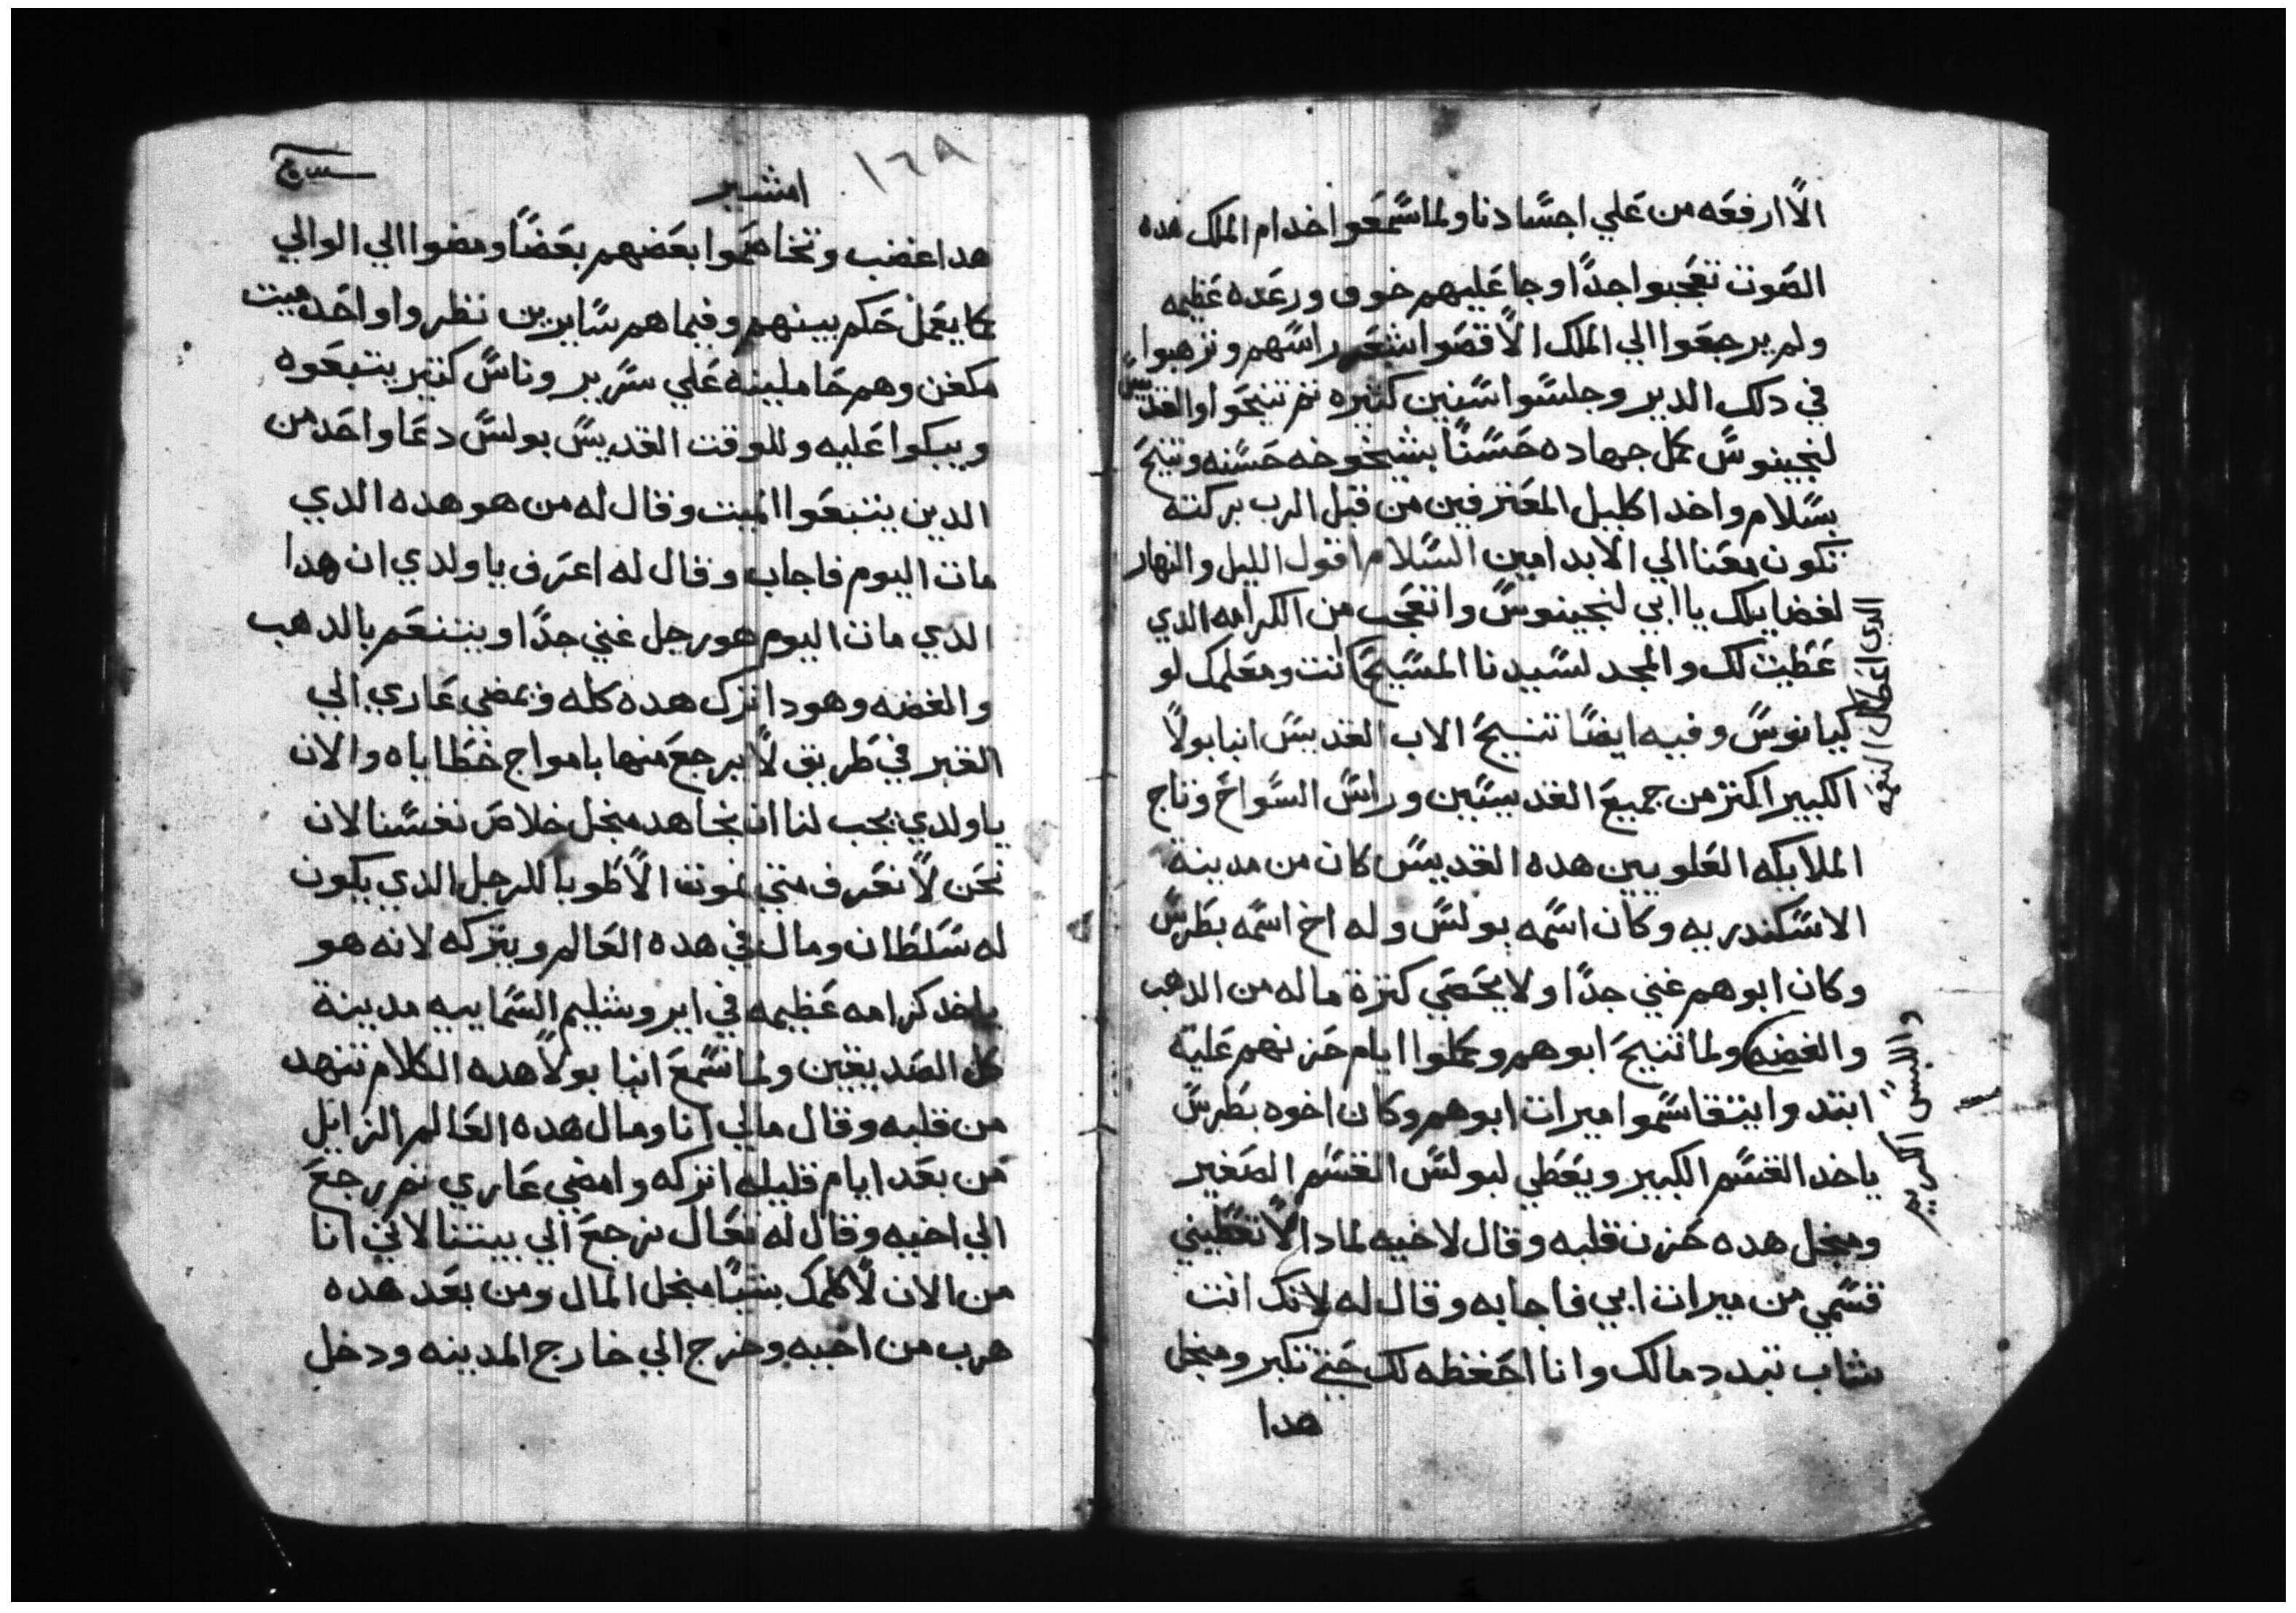 الا ارفعه من علي اجسادنا ولما سمعوا خدام الملك هده
الصوت تعجبوا جدًا وجا عليهم خوف ورعده عظيمه
ولم يرجعوا الي الملك الا قصوا شعر راسهم وترهبوا
في دلك الدير وجلسوا سنين كتيره تم تنيحوا والقديس
لنجينوس كمل جهاده حسنًا بشيخوخه حسنه وتنيح
بسلام واخد اكليل المعترفين من قبل الرب بركته
تكون معنا الي الابد امين السلام اقول الليل والنهار
لفضايلك يا ابي لنجينوس واتعجب من الكرامه الدي
عطيت لك والمجد لسيدنا المسيح انت ومعلمك لو
كيانوس وفيه ايضًا تنيح الاب القديس انبا بولا
الكبير اكتر من جميع القديسين وراس السواح وتاج
الملايكه العلويين هده القديس كان من مدينة
الاسكندريه وكان اسمه بولس وله اخ اسمه بطرس
وكان ابوهم غني جدًا ولا يحصي كترة ماله من الدهب
والفضه ولما تنيح ابوهم وكملوا ايام حزنهم عليه
ابتدوا يتقاسموا ميرات ابوهم وكان اخوه بطرس
ياخد القسم الكبير ويعطي لبولس القسم الصغير
ومنجل هده حزن قلبه وقال لاخيه لمادا لا تعطيني
قسمي من ميرات ابي فاجابه وقال له لانك انت
شاب تبدد مالك وانا احفظه لك حتي تكبر ومنجل
هدا
الدي اعطاك
واللبس الكريم
١٦٩
امشير
هدا غضب وتخاصموا بعضهم بعضًا ومضوا الي الوالي
كما يعمل حكم بينهم وفيما هم سايرين نظروا واحد ميت
مكفن وهم حاملينه علي سرير وناس كتير يتبعوه
ويبكوا عليه وللوقت القديس بولس دعا واحد من
الدين يتبعوا الميت وقال له من هو هده الدي
مات اليوم فاجاب وقال له اعرف يا ولدي ان هدا
الدي مات اليوم هو رجل غني جدًا ويتنعم بالدهب
والفضه وهودا ترك هده كله ويمضي عاري الي
القبر في طريق لا يرجع منها بامواج خطاياه والان
يا ولدي يجب لنا ان نجاهد منجل خلاص نفسنا لان
نحن لا نعرف متي نموت الا طوبا للرجل الدي يكون
له سلطان ومال في هده العالم ويتركه لانه هو
ياخد كرامه عظيمه في ايروشليم السماييه مدينة
كل الصديقين ولما سمع انبا بولا هده الكلام تنهد
من قلبه وقال مالي انا ومال هده العالم الزايل
من بعد ايام قليله اتركه وامضي عاري تم رجع
الي اخيه وقال له تعال نرجع الي بيتنا لاني انا
من الان لا اكلمك بشيًا منجل المال ومن بعد هده
هرب من اخيه وخرج الي خارج المدينه ودخل